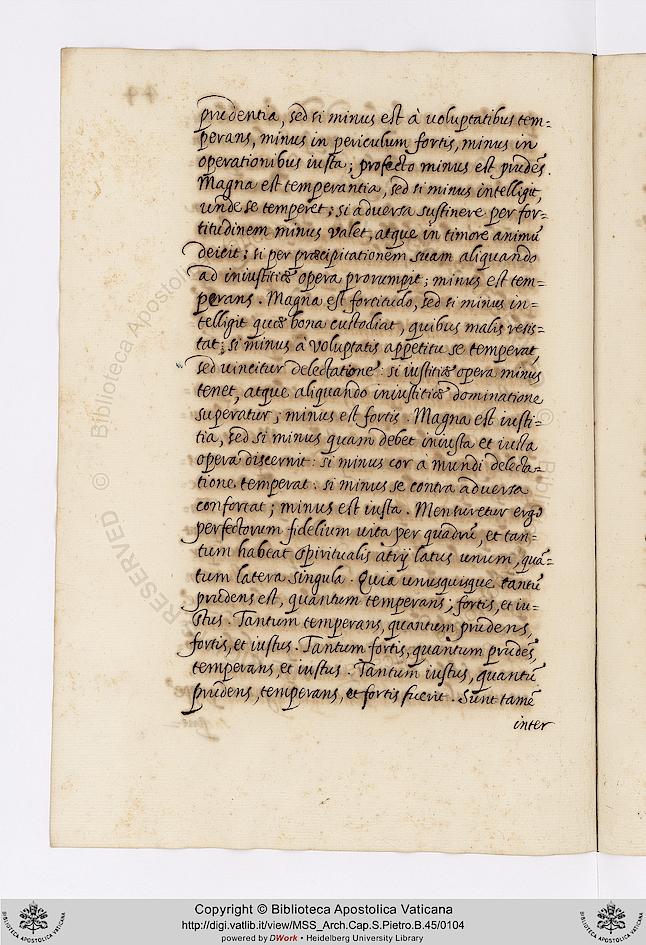 prudentia, sed si minus est à voluptatibus tem=
perans, minus in periculum fortis, minus in
operationibus iusta; profecto minus est prudẽs.
Magna est temperantia, sed si minus intelligit,
unde se temperet; si adversa sustinere per for=
titudinem minus valet, atque in timore animũ
deicit; si per præcipitationem suam aliquando
ad iniustitiæ opera prorumpit; minus est tem=
perans. Magna est fortitudo, sed si minus in=
telligit quæ bona custodiat, quibus malis resis=
tat; si minus à voluptatis appetitu se temperat,
sed vincitur delectatione: si iustitiæ opera minus
tenet, atque aliquando iniustitiæ dominatione
superatur; minus est fortis. Magna est iusti=
tia, sed si minus quam debet iniusta et iusta
opera discernit: si minus cor à mundi delecta=
tione temperat: si minus se contra adversa
confortat; minus est iusta. Mensuretur ergo
perfectorum fidelium vita per quadrũ, et tan=
tum habeat spiritualis atrij latus unum, quã=
tum latera singula. Quia unusquisque tantũ
prudens est, quantum temperans; fortis, et iu=
stus. Tantum temperans, quantum prudens,
fortis, et iustus. Tantum fortis, quantum prudẽs,
temperans, et iustus. Tantum iustus, quantũ
prudens, temperans, et fortis fuerit. Sunt tamẽ
inter
RESERVED © Biblioteca Apostolica
Copyright © Biblioteca Apostolica Vaticana
http://digi.vatlib.it/view/MSS_Arch.Cap.S.Pietro.B.45/0104
powered by DWork • Heidelberg University Library